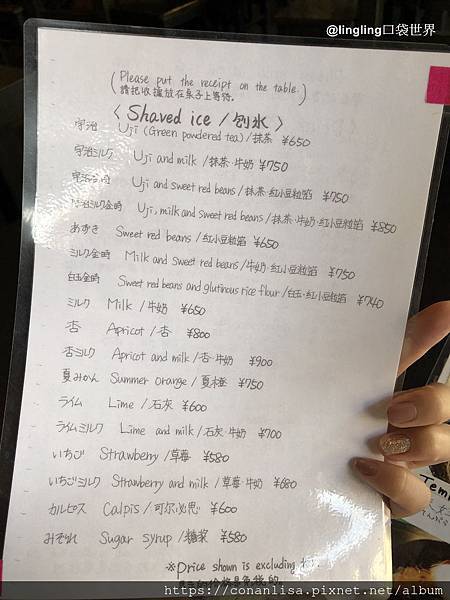 @lingling口袋世界
(Please put the receipt on the table.)
請把收據放在桌子上等待。
〈Shaved ice /刨冰〉
宇治 Uji (Green powdered tea) / 抹茶 ¥650
宇治ミルク Uji and milk / 抹茶・牛奶 ¥750
Uji and sweet red beans / 抹茶・紅小豆粒餡 ¥750
宇治ミルク金時 Uji, milk and sweet red beans / 抹茶・牛奶・紅小豆粒餡 ¥850
あずき Sweet red beans / 紅小豆粒餡 ¥650
ミルク金時 Milk and sweet red beans / 牛奶・紅小豆粒餡 ¥750
白玉金時 Sweet red beans and glutinous rice flour / 白玉・紅小豆粒餡 ¥740
ミルク Milk / 牛奶 ¥650
杏 Apricot / 杏 ¥800
杏ミルク Apricot and milk / 杏・牛奶 ¥900
夏みかん Summer orange / 夏橙 ¥750
ライム Lime / 石灰 ¥600
ライムミルク Lime and milk / 石灰・牛奶 ¥700
いちご Strawberry / 草莓 ¥580
いちごミルク Strawberry and milk / 草莓・牛奶 ¥680
カルピス Calpis / 可尔必思 ¥600
みぞれ Sugar syrup / 糖浆 ¥580
※Price shown is excluding
Tem
https://conanlisa.pixnet.net/album